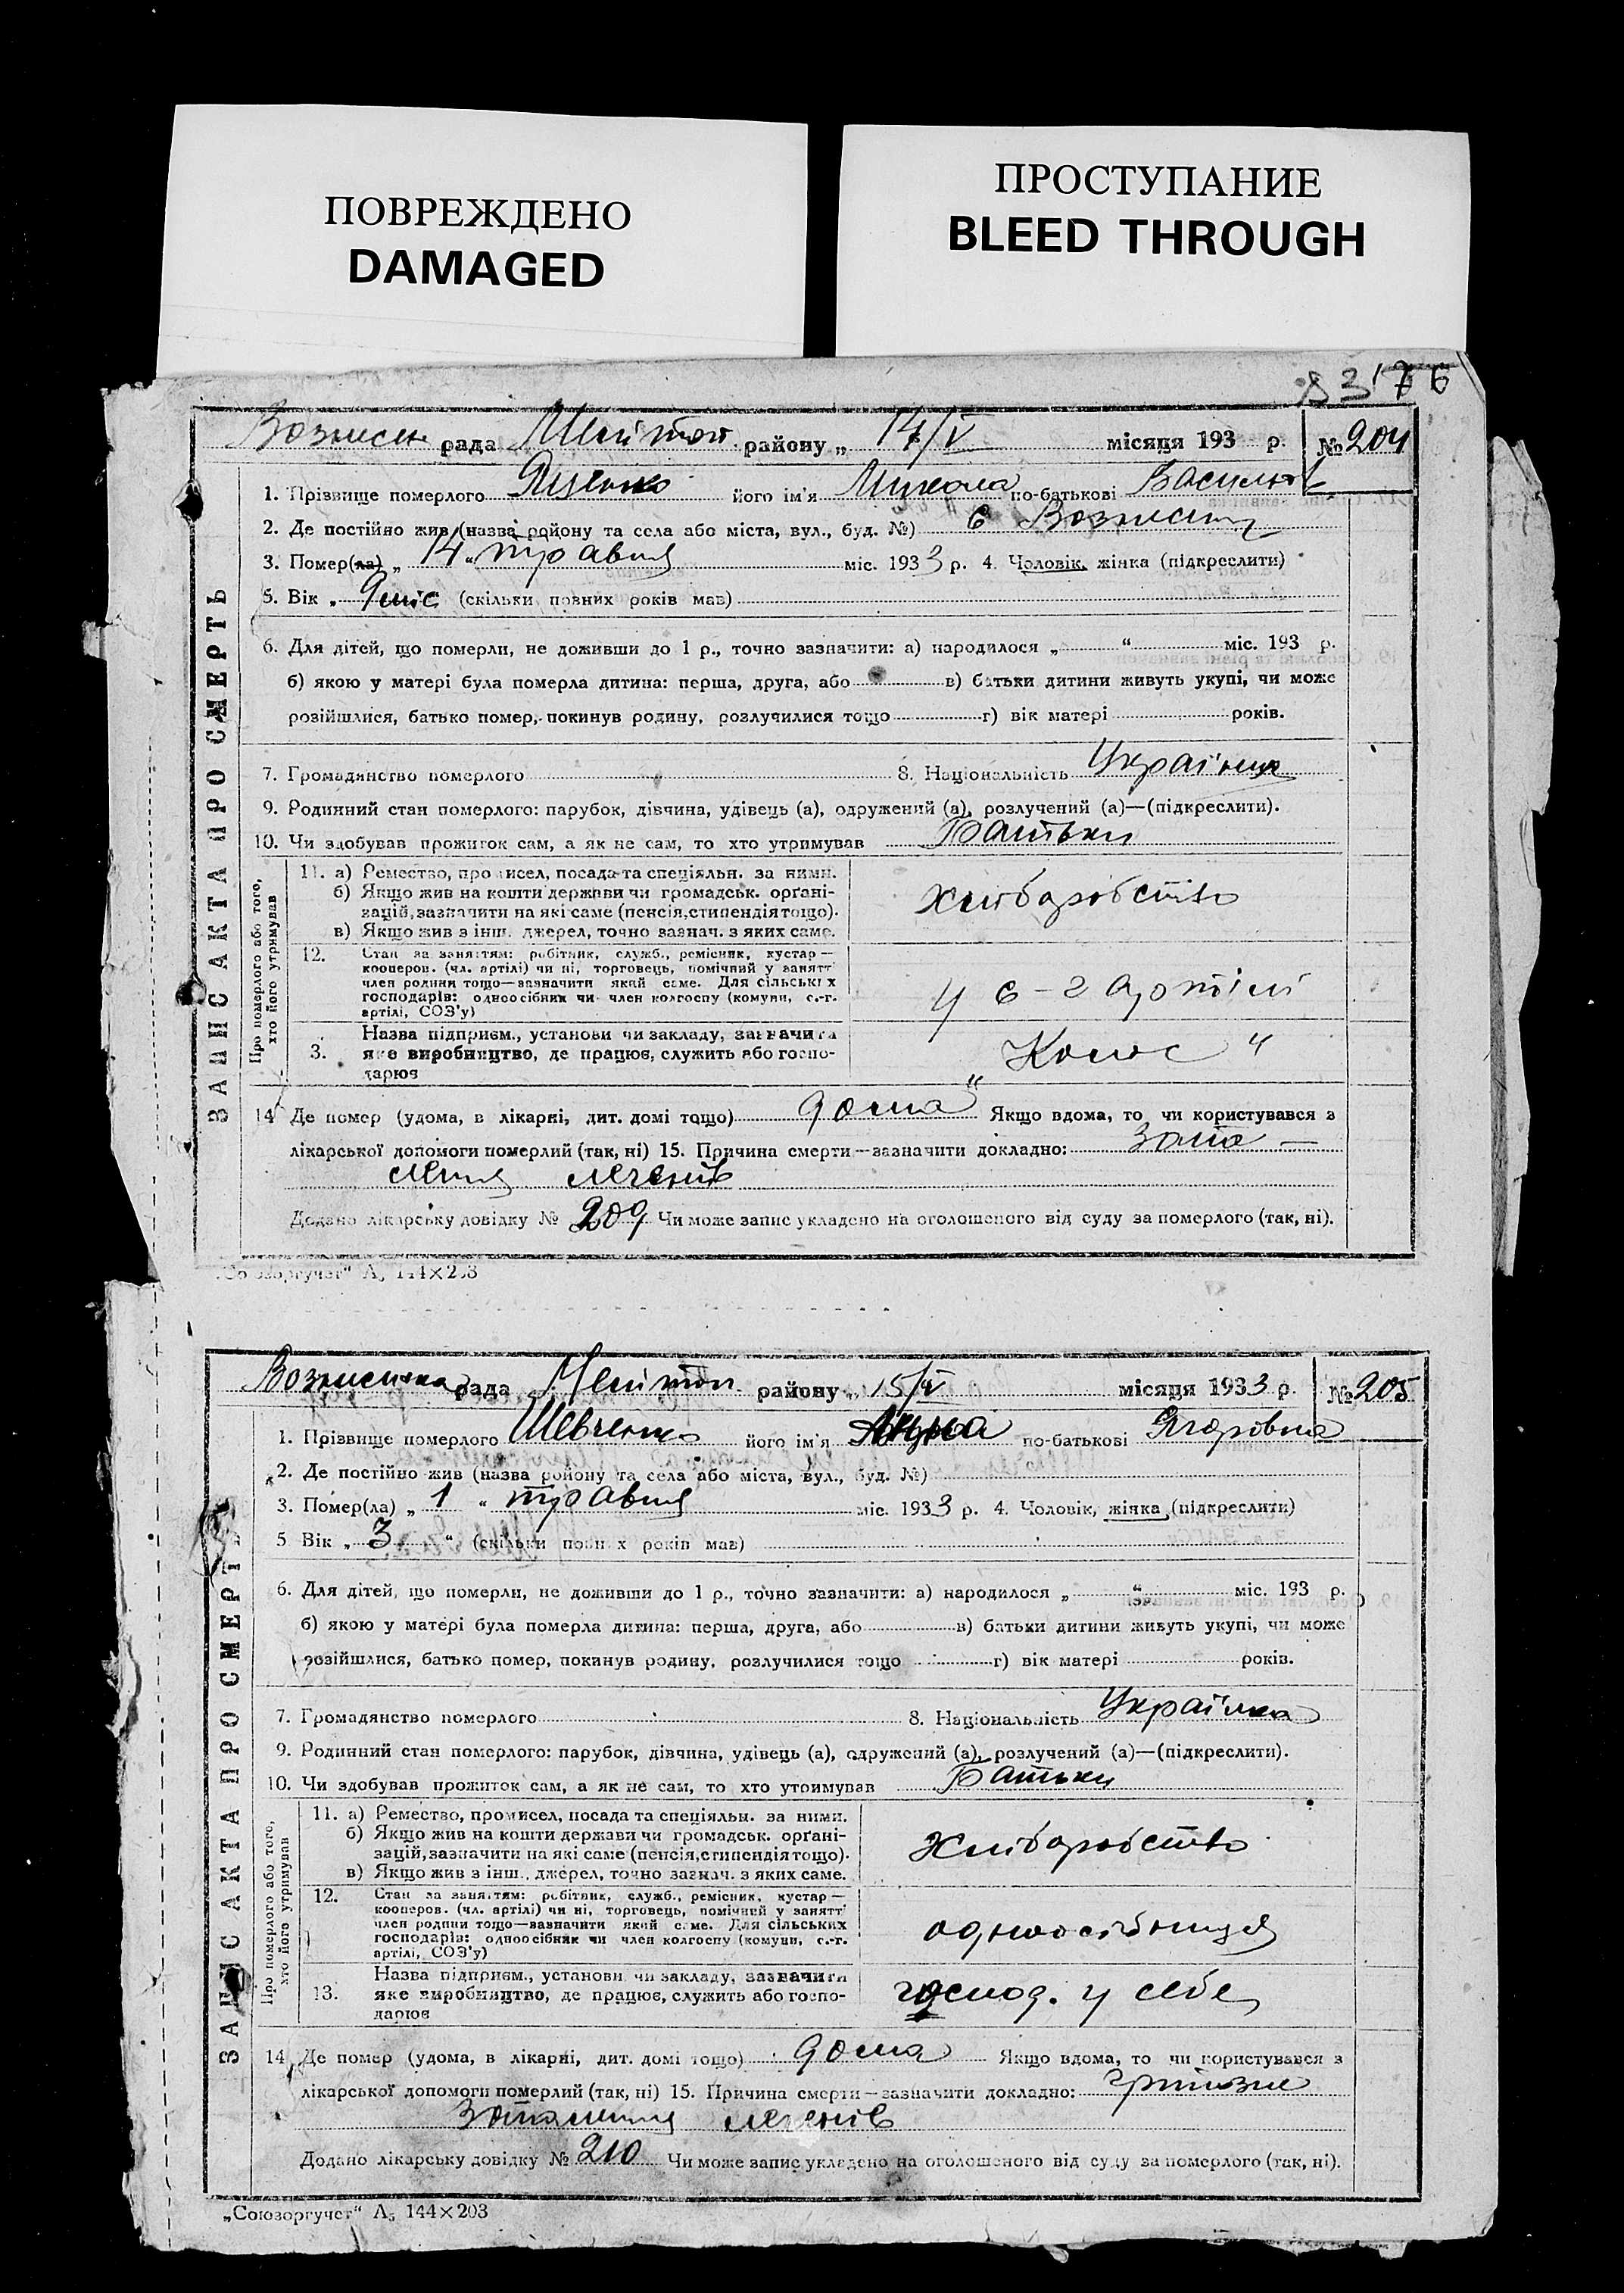 ПОВРЕЖДЕНО
DAMAGED
ПРОСТУПАНИЕ
BLEED THROUGH
Вознесен рада Мелітоп. району „ 14/V місяця 193 р. № 204
ЗАПИС АКТА ПРО СМЕРТЬ
1. Прізвище померлого Яценко його ім'я Микола по-батькові Василів
2. Де постійно жив (назва району та села або міста, вул., буд. №) с Вознесен
3. Помер(ла) „ 14 “ травня міс. 1933 р. 4. Чоловік, жінка (підкреслити)
5. Вік „ 9 міс (скільки повних років мав)
6. Для дітей, що померли, не доживши до 1 р., точно зазначити: а) народилося „ “ міс. 193 р.
б) якою у матері була померла дитина: перша, друга, або в) батьки дитини живуть укупі, чи може
розійшлися, батько помер, покинув родину, розлучилися тощо г) вік матері років.
7. Громадянство померлого 8. Національність Українця
9. Родинний стан померлого: парубок, дівчина, удівець (а), одружений (а), розлучений (а)—(підкреслити).
10. Чи здобував прожиток сам, а як не сам, то хто утримував Батьки
Про померлого або того, хто його утримував
11. а) Ремество, промисел, посада та спеціяльн. за ними.
б) Якщо жив на кошти держави чи громадськ. орґані-
зацій, зазначити на які саме (пенсія, стипендія тощо).
в) Якщо жив з інш. джерел, точно зазнач. з яких саме.
хліборобство
12. Стан за заняттям: робітник, служб., ремісник, кустар—
кооперов. (чл. артілі) чи ні, торговець, помічний у занятт
член родини тощо—зазначити який саме. Для сільських
господарів: одноосібник чи член колгоспу (комуни, с.-г.
артілі, СОЗ'у)
у с-г артілі
3. Назва підприєм., установи чи закладу, зазначити
яке виробництво, де працює, служить або госпо-
дарює
„Колос“
14 Де помер (удома, в лікарні, дит. домі тощо) дома Якщо вдома, то чи користувався з
лікарської допомоги померлий (так, ні) 15. Причина смерти—зазначити докладно: запа—
лення легенів
Додано лікарську довідку № 209 Чи може запис укладено на оголошеного від суду за померлого (так, ні).
„Союзоргучет“ А5 144×203
Вознесенка рада Мелітоп. району „ 15/V місяця 1933 р. № 205
ЗАПИС АКТА ПРО СМЕРТЬ
1. Прізвище померлого Шевченко його ім'я по-батькові Ягоровна
2. Де постійно жив (назва району та села або міста, вул., буд. №)
3. Помер(ла) „ 1 “ травня міс. 1933 р. 4. Чоловік, жінка (підкреслити)
5 Вік „ 3 “ (скільки повних років мав)
6. Для дітей, що померли, не доживши до 1 р., точно зазначити: а) народилося „ “ міс. 193 р.
б) якою у матері була померла дитина: перша, друга, або в) батьки дитини живуть укупі, чи може
розійшлися, батько помер, покинув родину, розлучилися тощо г) вік матері років.
7. Громадянство померлого 8. Національність Українка
9. Родинний стан померлого: парубок, дівчина, удівець (а), одружений (а), розлучений (а)—(підкреслити).
10. Чи здобував прожиток сам, а як не сам, то хто утримував Батьки
Про померлого або того, хто його утримував
11. а) Ремество, промисел, посада та спеціяльн. за ними.
б) Якщо жив на кошти держави чи громадськ. орґані-
зацій, зазначити на які саме (пенсія, стипендія тощо).
в) Якщо жив з інш. джерел, точно зазнач. з яких саме.
Хліборобство
12. Стан за заняттям: робітник, служб., ремісник, кустар—
кооперов. (чл. артілі) чи ні, торговець, помічний у занятт
член родини тощо—зазначити який саме. Для сільських
господарів: одноосібник чи член колгоспу (комуни, с.-г.
артілі, СОЗ'у)
одноосібниця
13. Назва підприєм., установи чи закладу, зазначити
яке виробництво, де працює, служить або госпо-
дарює
господ. у себе
14 Де помер (удома, в лікарні, дит. домі тощо) дома Якщо вдома, то чи користувався з
лікарської допомоги померлий (так, ні) 15. Причина смерти—зазначити докладно:
запалення легенів
Додано лікарську довідку № 210 Чи може запис укладено на оголошеного від суду за померлого (так, ні).
„Союзоргучет“ А5 144×203